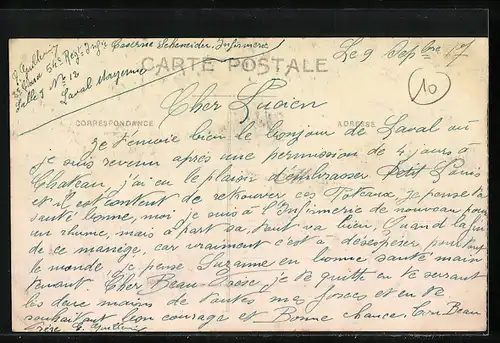 E. Guillemin Caserne Schneider, Infirmerie
54e Regt Inf
Salle 1 No 12
Laval Mayenne
Le 9 Septbre 17
10
CARTE POSTALE
Cher Lucien
CORRESPONDANCE ADRESSE
Je t'envoie bien le bonjour de Laval où
je suis revenu après une permission de 4 jours à
Chateau, j'ai eu le plaisir d'embrasser Petit Louis
et il est content de retrouver ces Poteaux, je pense ta
santé bonne, moi je suis à l'Infirmerie de nouveau pour
un rhume, mais à part sa, tout va bien, Quand la fin
de ce manège, car vraiment c'est à désespérer pour tout
le monde, je pense Suzanne en bonne santé main-
tenant Cher Beau-Frère, je te quitte en te serrant
les deux mains de toutes mes forces et en te
souhaitant bon courage et Bonne chance. Ton Beau
Frère E. Guillemin